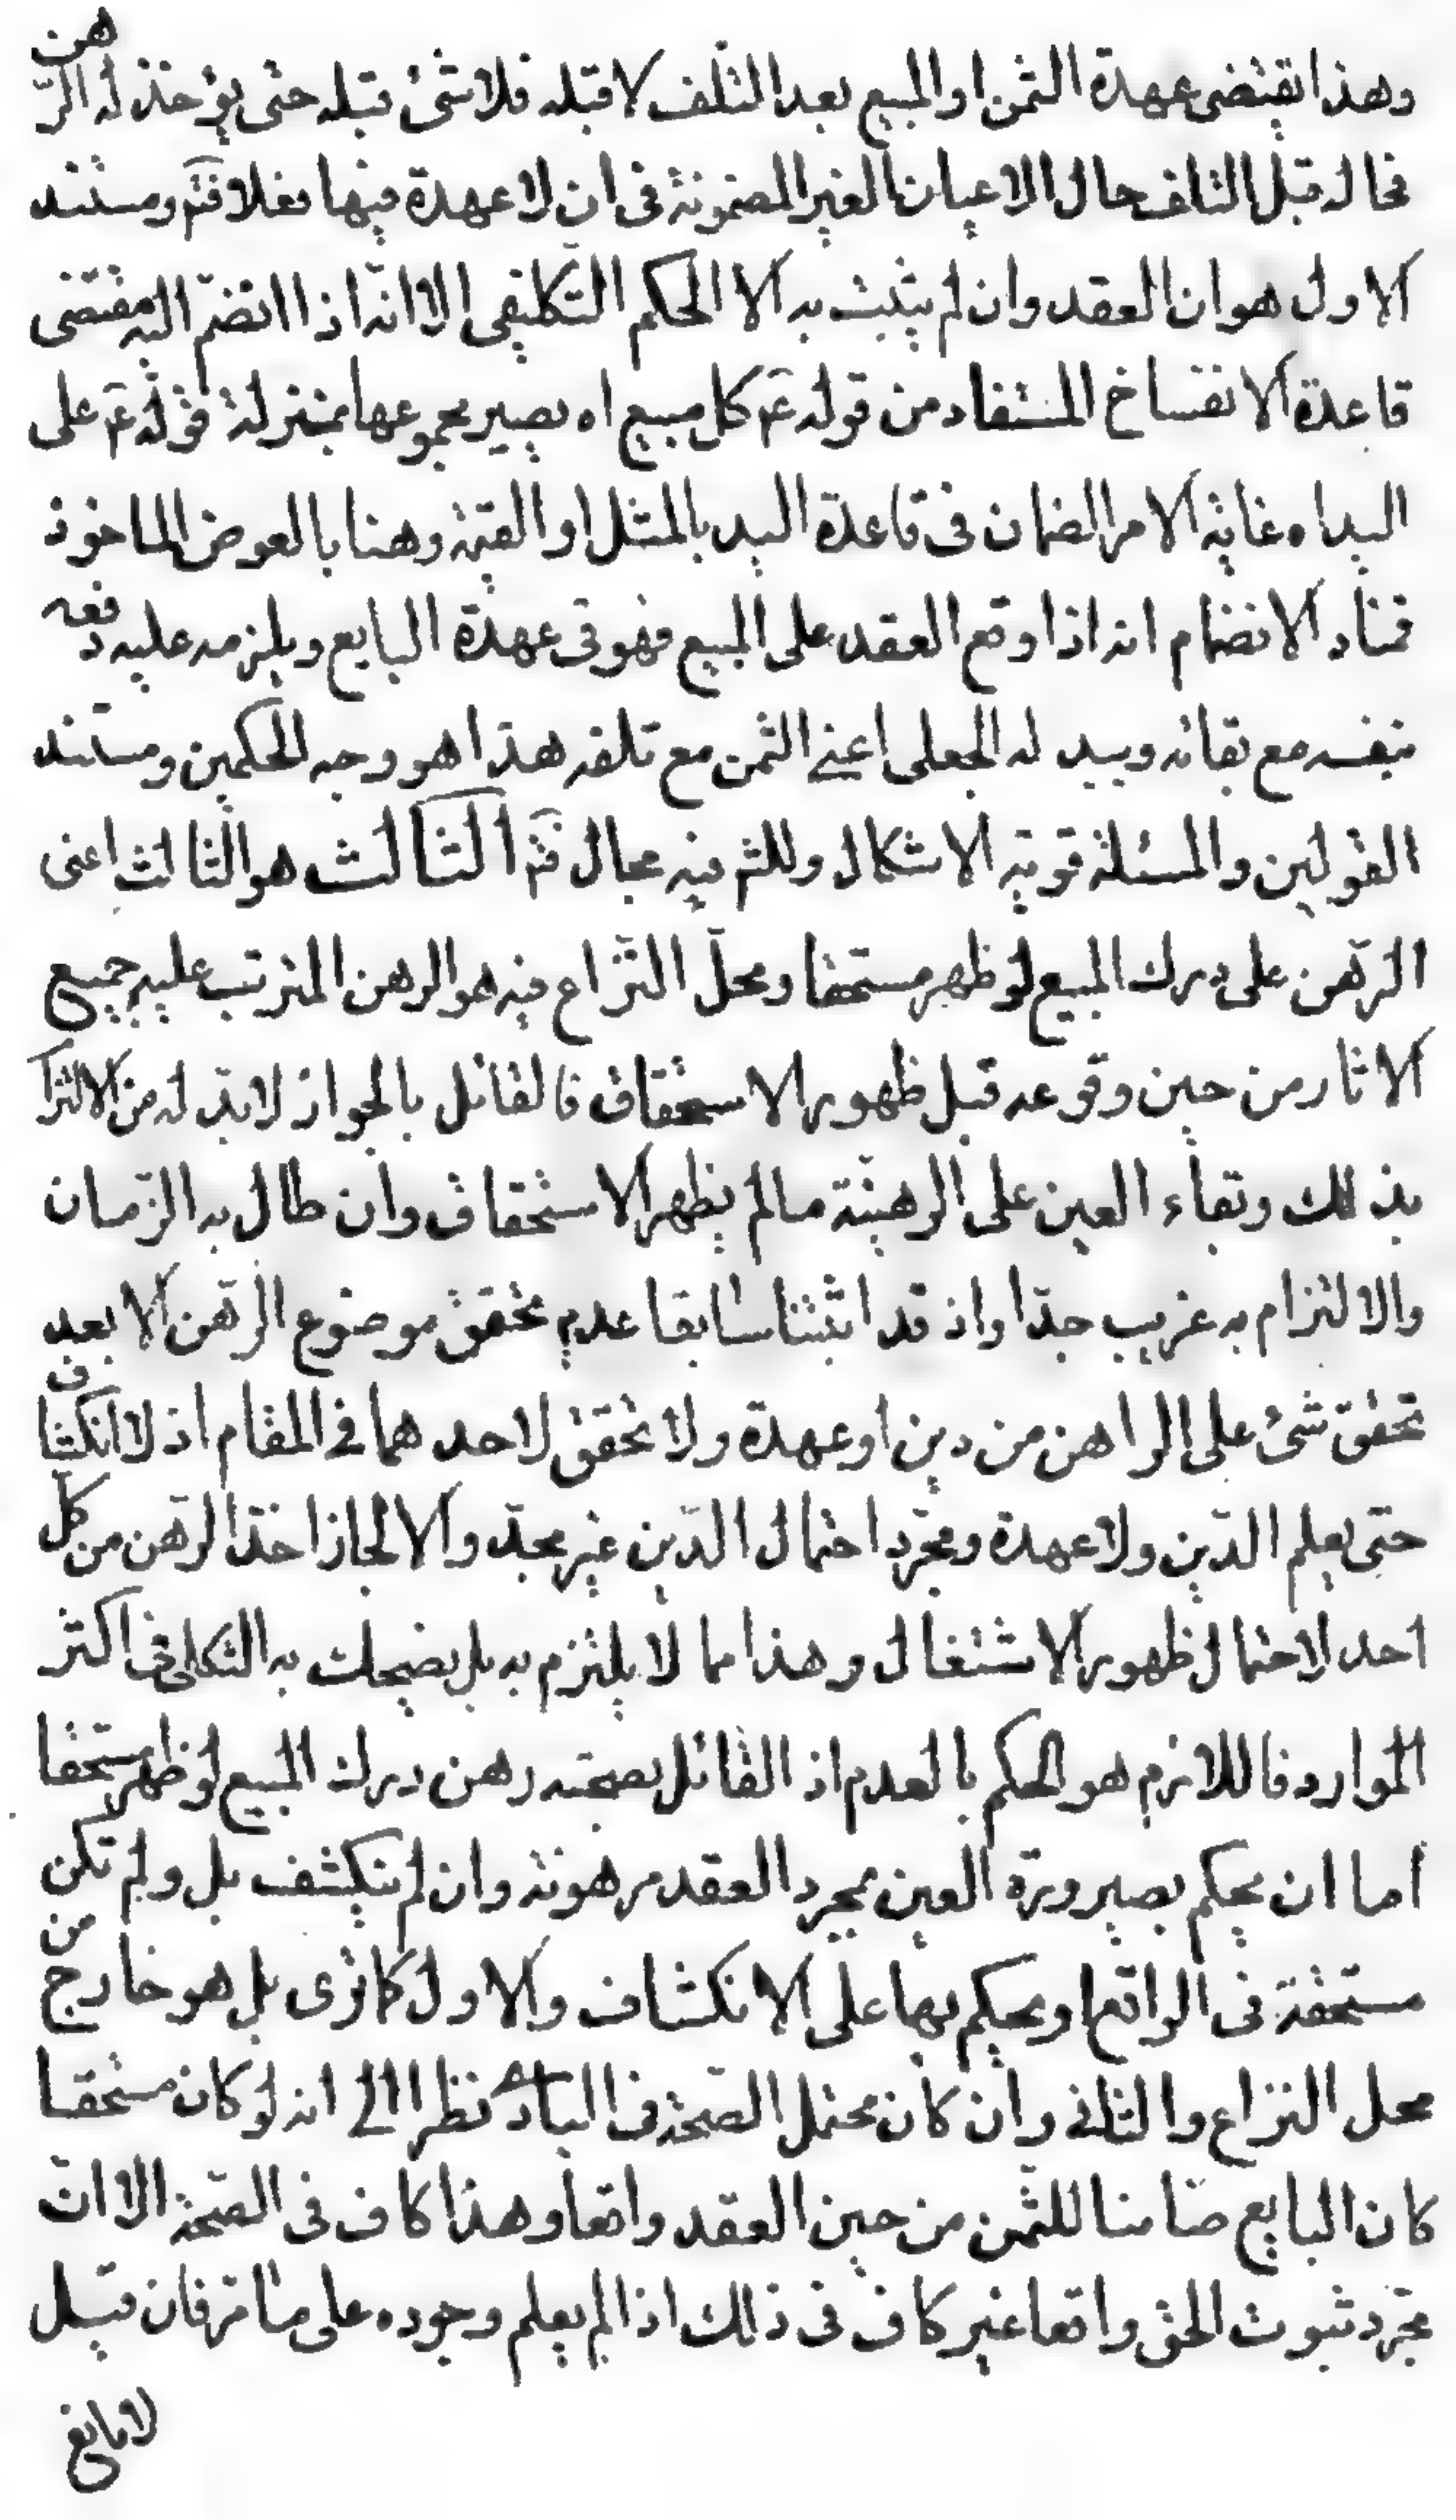 وهذا يقتضى عهدة الثمن او المبيع بعد التلف لا قبله فلا شئ قبله حتى يؤخذ له الرّهن
فحاله قبل التلف حال الاعيان الغير المضمونة فى ان لا عهدة فيها فعلا فتم ومستند
الاول هو ان العقد وان لم يثبت به الا الحكم التكليفى الا انّه اذا انضمّ اليه مقتضى
قاعدة الانفساخ المستفاد من قوله عَ كل مبيع اه يصير مجموعها بمنزلة قوله عَ على
اليد اه غاية الامر الضمان فى قاعدة اليد بالمثل او القيمة وهنا بالعوض الماخوذ
فمفاد الانضمام انه اذا وقع العقد على المبيع فهو فى عهدة البايع ويلزمه عليه دفعه
بنفسه مع بقائه وببدله الجعلى اعنى الثمن مع تلفه هذا هو وجه الحكمين ومستند
القولين والمسئلة قوية الاشكال وللتم فيه مجال فتم الثالث هو الثالث اعنى
الرّهن على درك المبيع لو ظهر مستحقا ومحلّ النّزاع فيه هو الرهن المترتب عليه جميع
الاثار من حين وقوعه قبل ظهور الاستحقاق فالقائل بالجواز لا بدّ له من الالتزا
بذلك وبقاء العين على الرهينة مالم يظهر الاستحقاق وان طال به الزّمان
والالتزام به غريب جدّا واذ قد اثبتنا سابقا عدم تحقق موضوع الرّهن الا بعد
تحقق شئ على الراهن من دين او عهدة ولا تحقق لاحدهما فى المقام اذ لا انكشاف
حتى يعلم الدّين ولا عهدة ومجرّد احتمال الدّين غير مجدّ والا لجاز اخذ الرّهن من كل
احد لاحتمال ظهور الاشتغال وهذا مما لا يلتزم به بل يضحك به الثكلى فى اكثر
الموارد فاللازم هو الحكم بالعدم اذ القائل بصحته رهن درك المبيع لو ظهر مستحقا
اما ان يحكم بصيرورة العين بمجرد العقد مرهونة وان لم ينكشف بل ولم تكن
مستحقة فى الواقع او يحكم بها على الانكشاف والاول كما ترى بل هو خارج من
محل النزاع والثانى وان كان محتمل الصّحة فى البادى نظرا الى انه لو كان مستحقا
كان البايع ضامنا للثّمن من حين العقد واقعا وهذا كاف فى الصّحة الا انّ
مجرّد ثبوت الحق واقعا غير كاف فى ذلك اذا لم يعلم وجوده على ما مرّ فان قيل
لا مانع